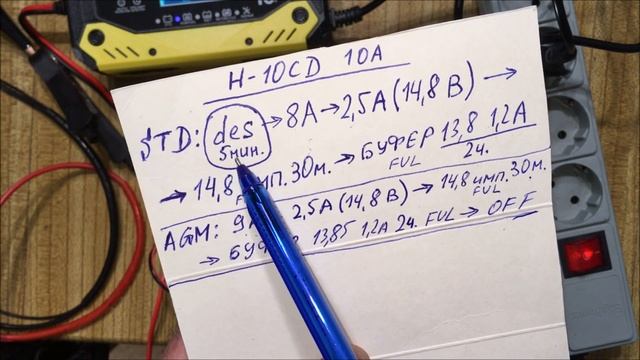 H-10CD 10A
STD: des 5мин. → 8A → 2,5A (14,8 В) →
→ 14,8 имп. 30м. → БУФЕР 13,8 1,2A
FUL 24.
AGM: 9A 2,5A (14,8 В) → 14,8 имп. 30м.
FUL
→ БУФЕР 13,85 1,2A 24. FUL → OFF